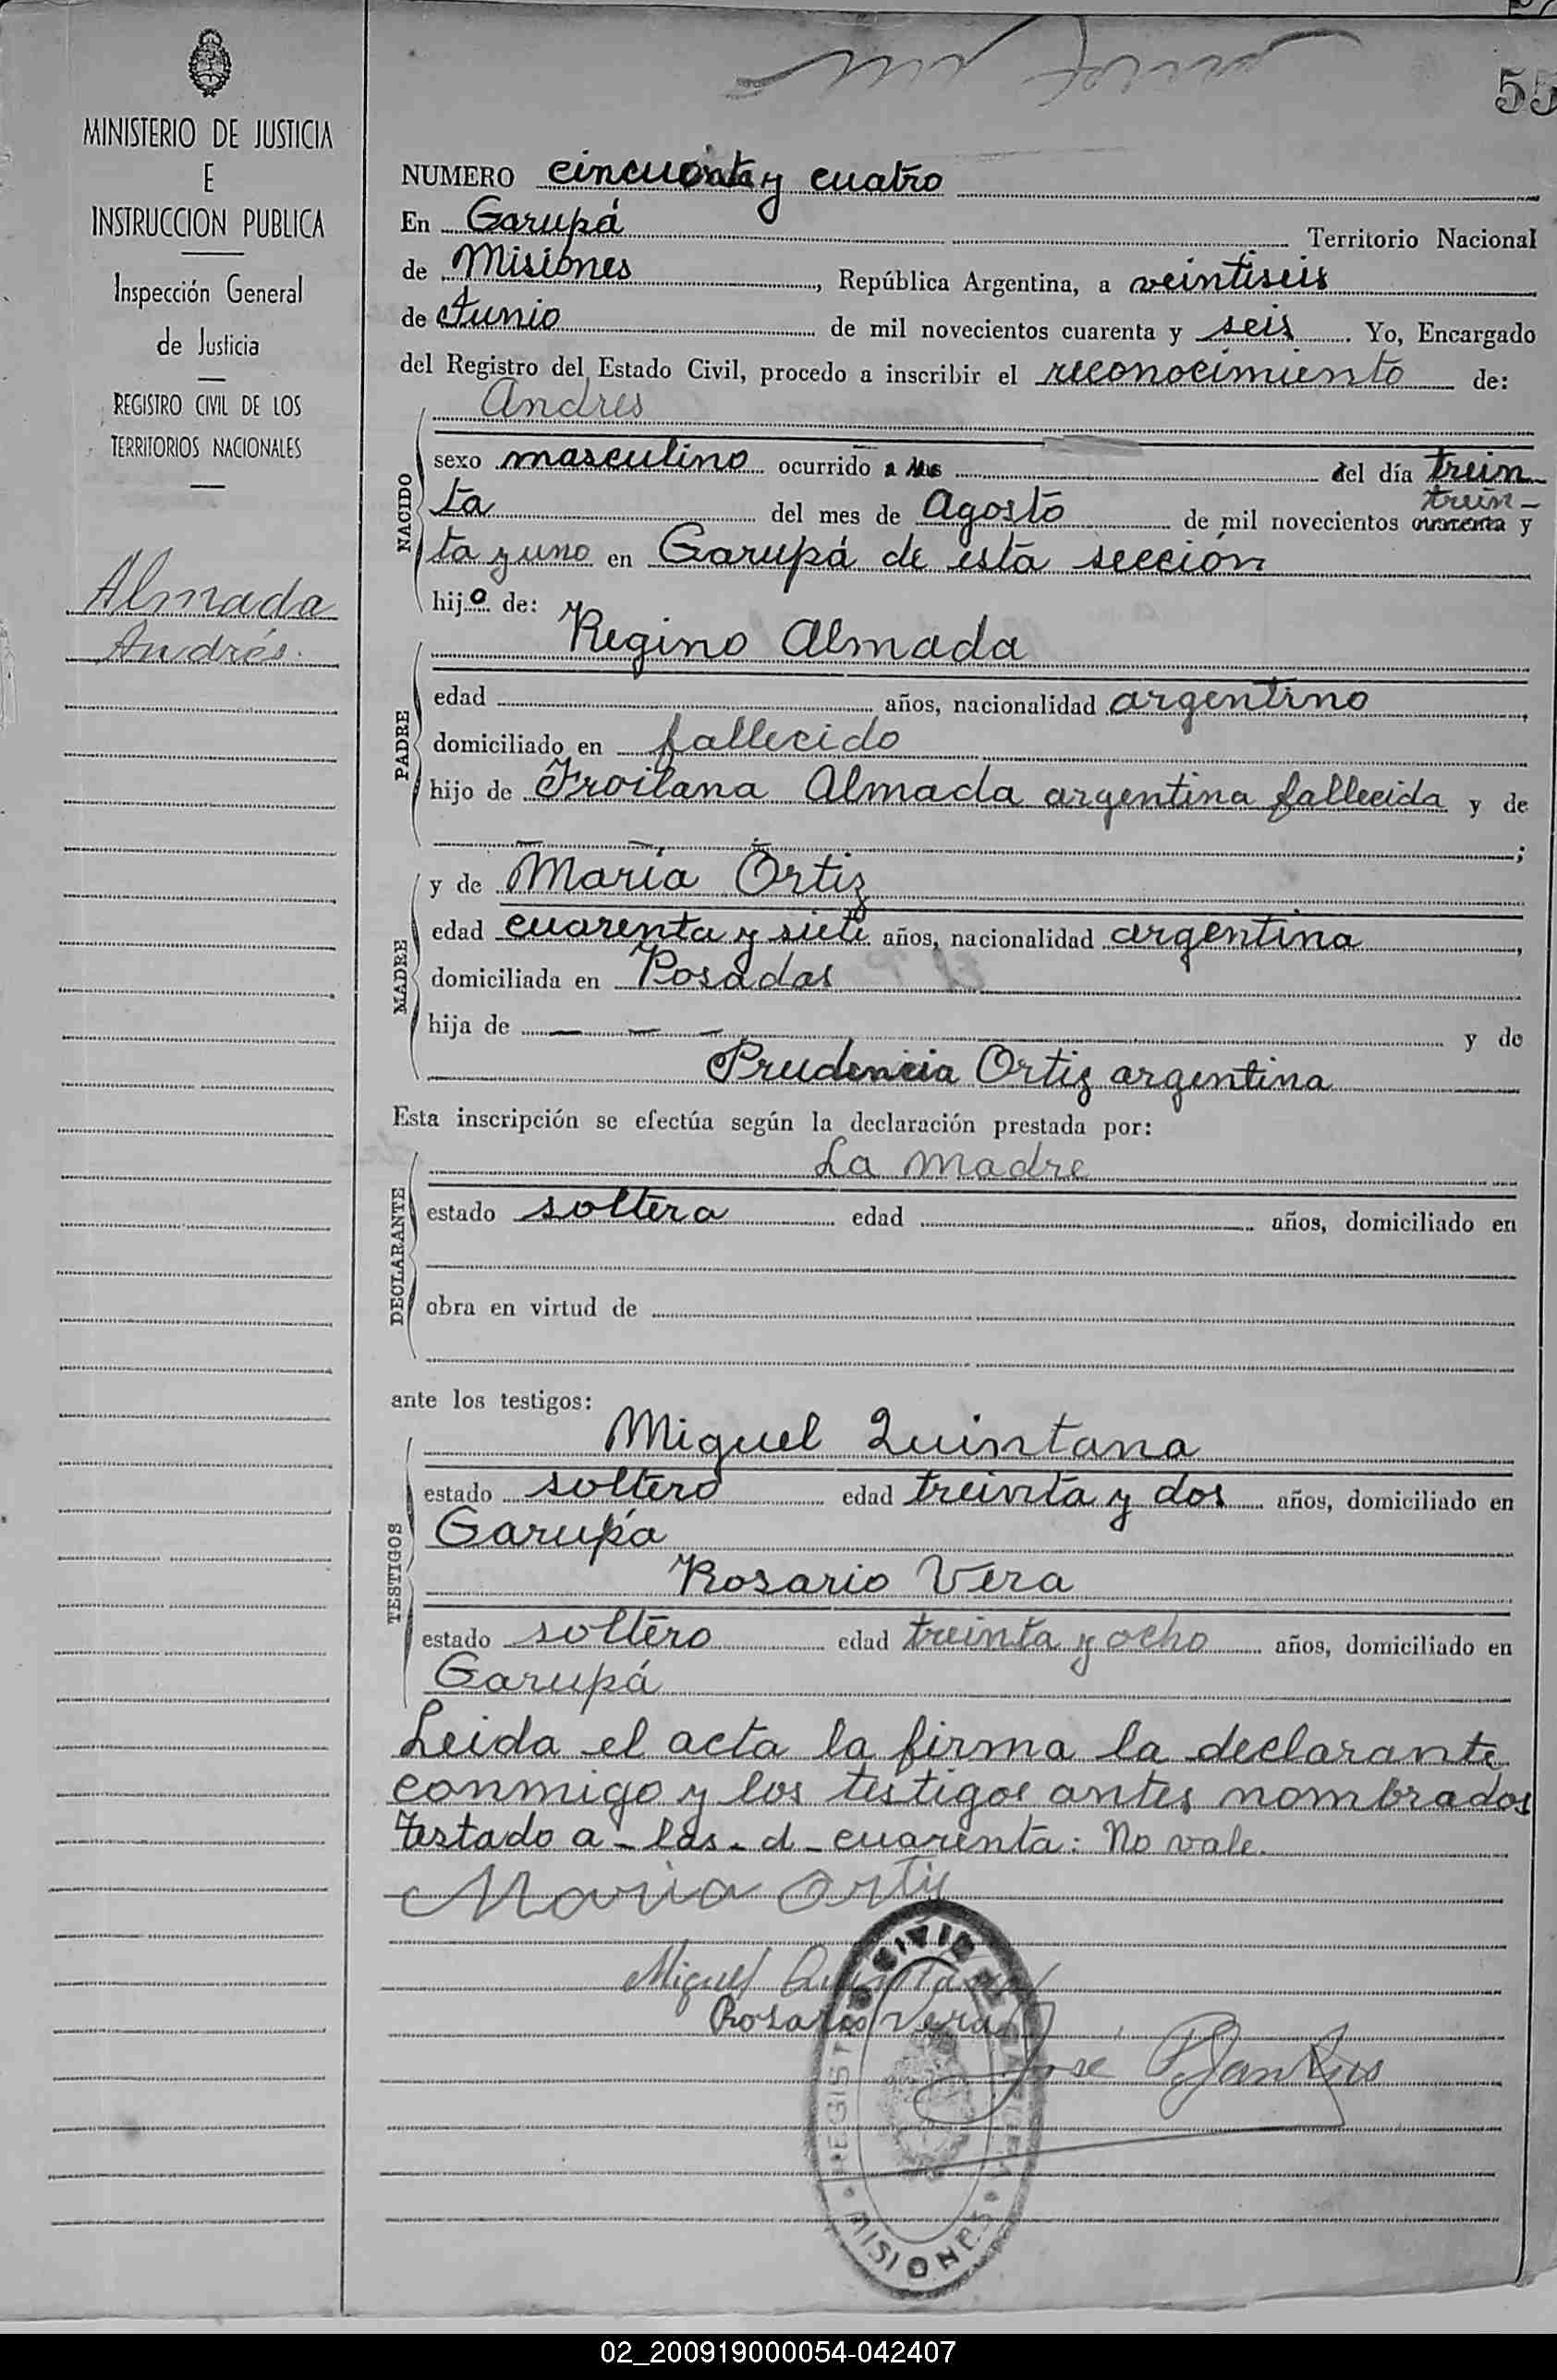 MINISTERIO DE JUSTICIA
E
INSTRUCCION PUBLICA
Inspección General
de Justicia
REGISTRO CIVIL DE LOS
TERRITORIOS NACIONALES
Almada
Andrés.
55
NUMERO cincuenta y cuatro
En Garupá Territorio Nacional
de Misiones, República Argentina, a veintiseis
de Junio de mil novecientos cuarenta y seis. Yo, Encargado
del Registro del Estado Civil, procedo a inscribir el reconocimiento de:
NACIDO
Andres
sexo masculino ocurrido a las del día trein-
ta del mes de Agosto de mil novecientos cuarenta trein- y
ta y uno en Garupá de esta sección
hijo de:
PADRE
Regino Almada
edad años, nacionalidad argentino,
domiciliado en fallecido
hijo de Froilana Almada argentina fallecida y de
— — — ;
MADRE
y de María Ortiz
edad cuarenta y siete años, nacionalidad argentina,
domiciliada en Posadas
hija de — — — y de
Prudencia Ortiz argentina
Esta inscripción se efectúa según la declaración prestada por:
DECLARANTE
La madre
estado soltera edad años, domiciliado en
obra en virtud de
ante los testigos:
TESTIGOS
Miguel Quintana
estado soltero edad treinta y dos años, domiciliado en
Garupá
Rosario Vera
estado soltero edad treinta y ocho años, domiciliado en
Garupá
Leida el acta la firma la declarante
conmigo y los testigos antes nombrados
Testado a - las - d - cuarenta: No vale.
Maria Ortiz
Miguel Quintana
Rosario Vera
José
REGISTRO CIVIL
MISIONES
02_200919000054-042407